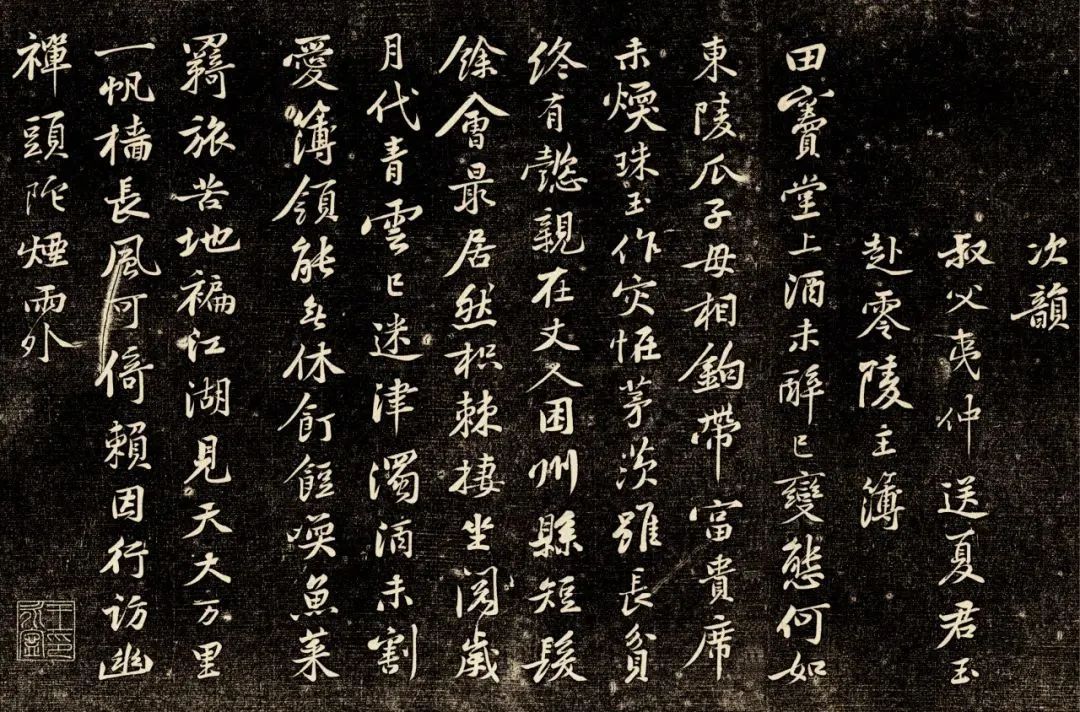 次韻
叔父夷仲送夏君玉
赴零陵主簿
田竇堂上酒未醉已變態何如
東陵瓜子母相鉤帶富貴席
未煖珠玉作災惟茅茨雖長貧
終有懿親在丈人困州縣短髮
餘會最居然枳棘棲坐閱歲
月代青雲已迷津濁酒未割
愛簿領能無休飣餖喚魚菜
羇旅苦地褊江湖見天大万里
一帆檣長風可倚賴因行訪幽
禪頭陀煙雨外